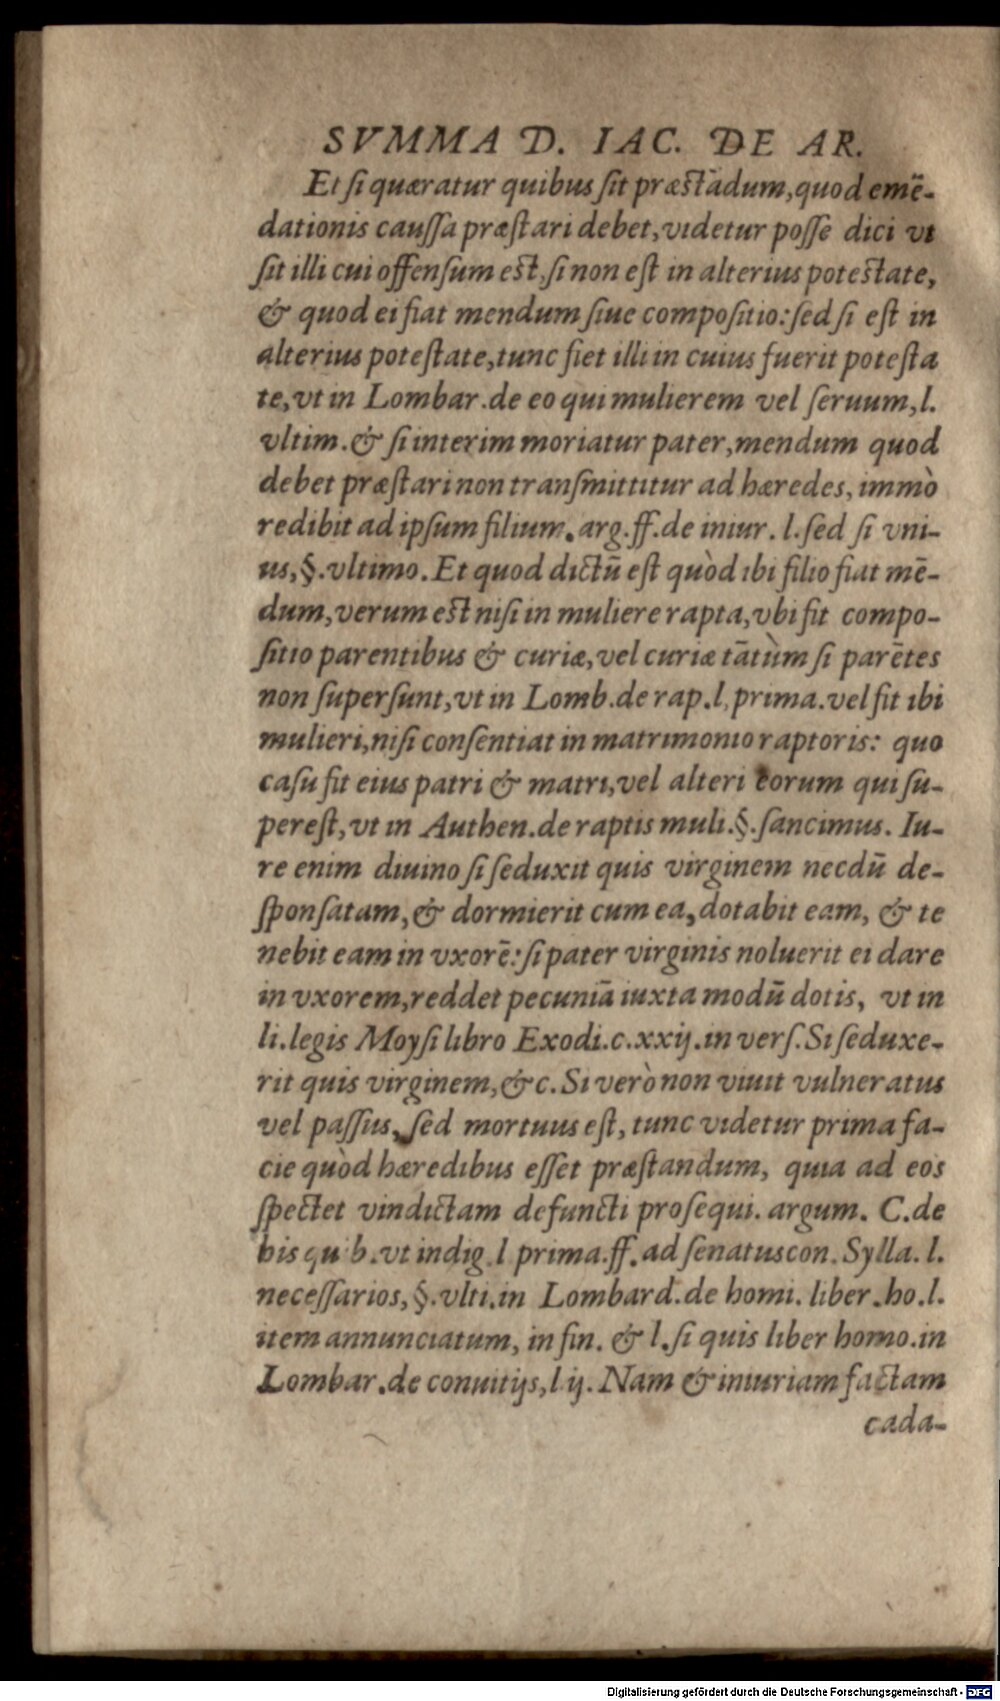 SVMMA D. IAC. DE AR.
Et si quæratur quibus sit præstādum, quod emē-
dationis caussa præstari debet, videtur posse dici vt
sit illi cui offensum est, si non est in alterius potestate,
& quod ei fiat mendum siue compositio: sed si est in
alterius potestate, tunc fiet illi in cuius fuerit potesta
te, vt in Lombar. de eo qui mulierem vel seruum, l.
vltim. & si interim moriatur pater, mendum quod
debet præstari non transmittitur ad hæredes, immò
redibit ad ipsum filium. arg. ff. de iniur. l. sed si vni-
us, §. vltimo. Et quod dictū est quòd ibi filio fiat mē-
dum, verum est nisi in muliere rapta, vbi fit compo-
sitio parentibus & curiæ, vel curiæ tātùm si parētes
non supersunt, vt in Lomb. de rap. l. prima. vel fit ibi
mulieri, nisi consentiat in matrimonio raptoris: quo
casu fit eius patri & matri, vel alteri eorum qui su-
perest, vt in Authen. de raptis muli. §. sancimus. Iu-
re enim diuino si seduxit quis virginem necdū de-
sponsatam, & dormierit cum ea, dotabit eam, & te
nebit eam in vxorē: si pater virginis noluerit ei dare
in vxorem, reddet pecuniā iuxta modū dotis, vt in
li. legis Moysi libro Exodi. c. xxij. in vers. Si seduxe-
rit quis virginem, &c. Si verò non viuit vulneratus
vel passus, sed mortuus est, tunc videtur prima fa-
cie quòd hæredibus esset præstandum, quia ad eos
spectet vindictam defuncti prosequi. argum. C. de
his quib. vt indig. l prima. ff. ad senatuscon. Sylla. l.
necessarios, §. vlti. in Lombard. de homi. liber. ho. l.
item annunciatum, in fin. & l. si quis liber homo. in
Lombar. de conuitijs, l ij. Nam & iniuriam factam
cada-
Digitalisierung gefördert durch die Deutsche Forschungsgemeinschaft - DFG